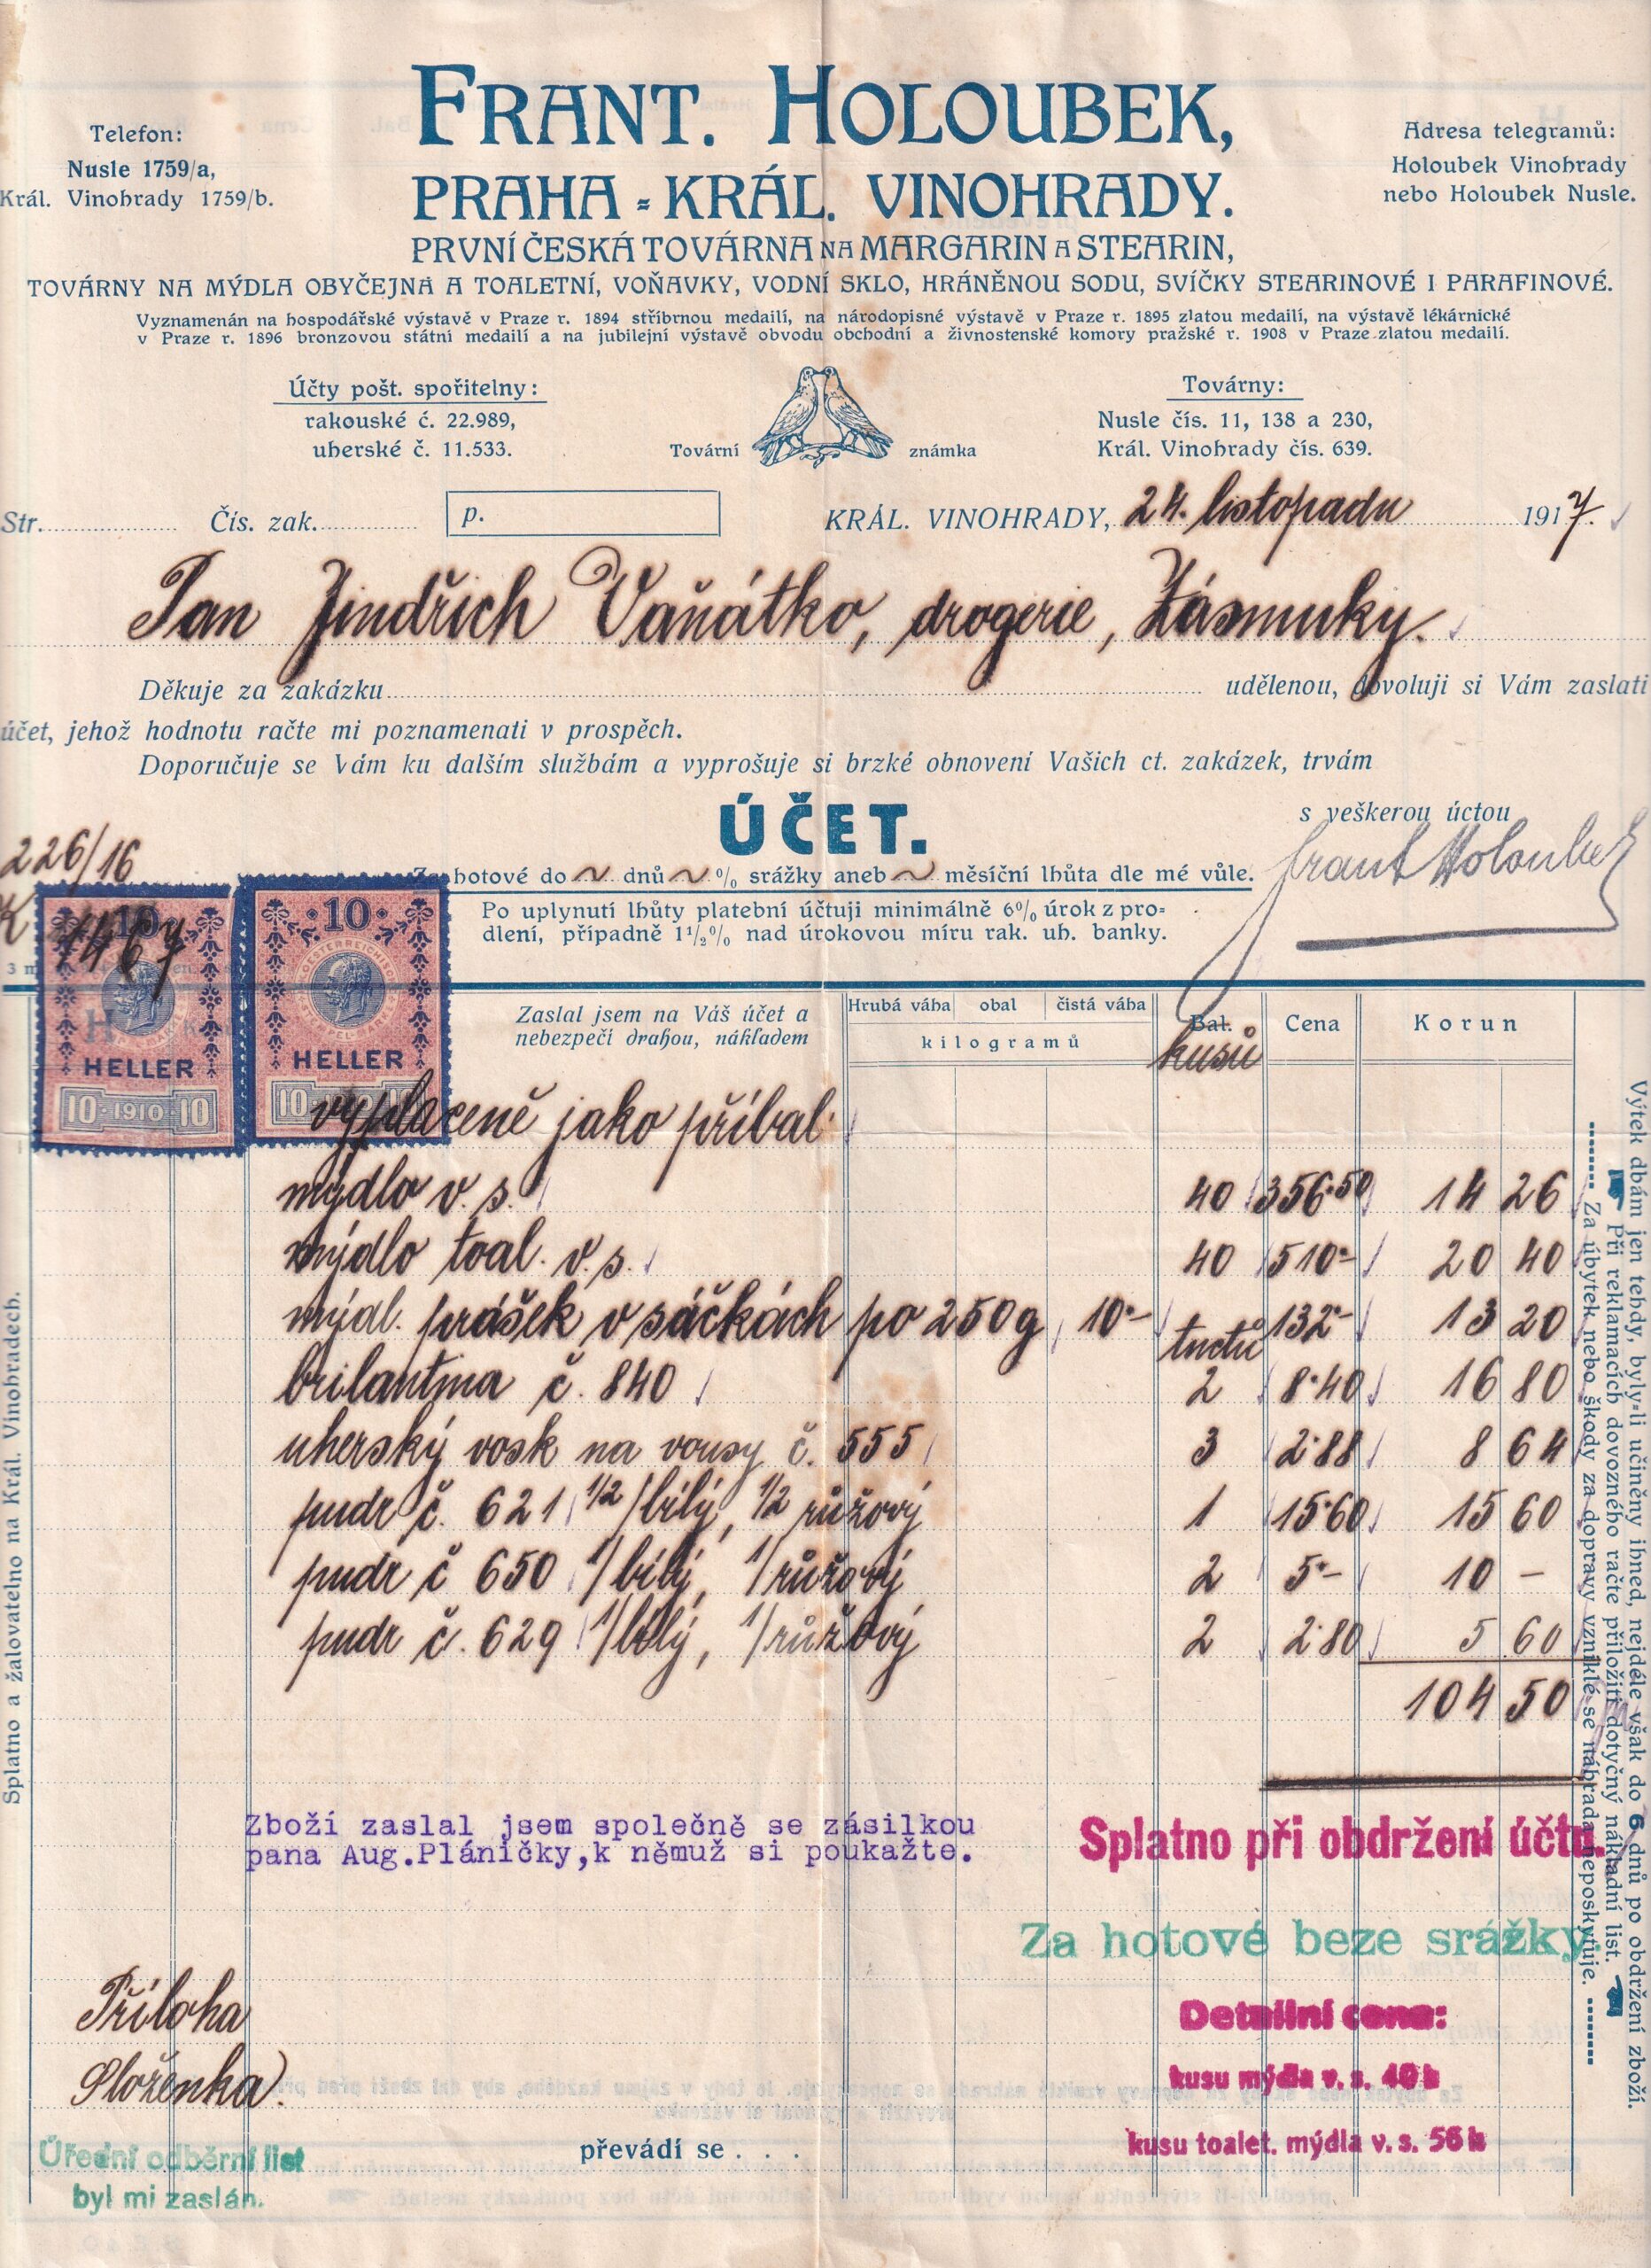 FRANT. HOLOUBEK,
PRAHA = KRÁL. VINOHRADY.
Telefon:
Nusle 1759/a,
Král. Vinohrady 1759/b.
Adresa telegramů:
Holoubek Vinohrady
nebo Holoubek Nusle.
PRVNÍ ČESKÁ TOVÁRNA NA MARGARIN A STEARIN,
TOVÁRNY NA MÝDLA OBYČEJNÁ A TOALETNÍ, VOŇAVKY, VODNÍ SKLO, HRÁNĚNOU SODU, SVÍČKY STEARINOVÉ I PARAFINOVÉ.
Vyznamenán na hospodářské výstavě v Praze r. 1894 stříbrnou medailí, na národopisné výstavě v Praze r. 1895 zlatou medailí, na výstavě lékárnické
v Praze r. 1896 bronzovou státní medailí a na jubilejní výstavě obvodu obchodní a živnostenské komory pražské r. 1908 v Praze zlatou medailí.
Účty pošt. spořitelny:
rakouské č. 22.989,
uherské č. 11.533.
Tovární známka
Továrny:
Nusle čís. 11, 138 a 230,
Král. Vinohrady čís. 639.
Str. Čís. zak. p. KRÁL. VINOHRADY, 24. listopadu 1917.
Pan Jindřich Vaňátko, drogerie, Zásmuky.
Děkuje za zakázku udělenou, dovoluji si Vám zaslati
účet, jehož hodnotu račte mi poznamenati v prospěch.
Doporučuje se Vám ku dalším službám a vyprošuje si brzké obnovení Vašich ct. zakázek, trvám
s veškerou úctou
Frant Holoubek
ÚČET.
226/16
K 1467
Za hotové do ~ dnů ~ % srážky aneb ~ měsíční lhůta dle mé vůle.
Po uplynutí lhůty platební účtuji minimálně 6% úrok z pro=
dlení, případně 1½% nad úrokovou míru rak. uh. banky.
10 10
HELLER HELLER
10 1910 10 10
Zaslal jsem na Váš účet a
nebezpečí drahou, nákladem
Hrubá váha obal čistá váha
kilogramů
Bal. Cena Korun
kusů
vyplaceně jako příbal.
mýdlo v. s. 40 356·50 14 26
mýdlo toal. v. s. 40 510- 20 40
mýdl. prášek v sáčkách po 250 g 10·- 132- 13 20
tuctů
brilantina č. 840 2 8·40 16 80
uherský vosk na vousy č. 555 3 2·88 8 64
pudr č. 621 1/2/bílý, 1/2 růžový 1 15·60 15 60
pudr č 650 1/bílý, 1/růžový 2 5·- 10 -
pudr č. 629 1/bílý, 1/růžový 2 2·80 5 60
104 50
Zboží zaslal jsem společně se zásilkou
pana Aug.Pláničky,k němuž si poukažte.
Splatno při obdržení účtu.
Za hotové beze srážky.
Detailní cena:
kusu mýdla v. s. 40 h
kusu toalet. mýdla v. s. 56 h
Příloha
Složenka.
Úřední odběrní list
byl mi zaslán.
převádí se . . .
Splatno a žalovatelno na Král. Vinohradech.
Výtek dbám jen tehdy, byly=li učiněny ihned, nejdéle však do 6 dnů po obdržení zboží.
Při reklamacích dovozného račte přiložiti dotyčný nákladní list.
Za úbytek nebo škody za dopravy vzniklé se náhrada neposkytuje.